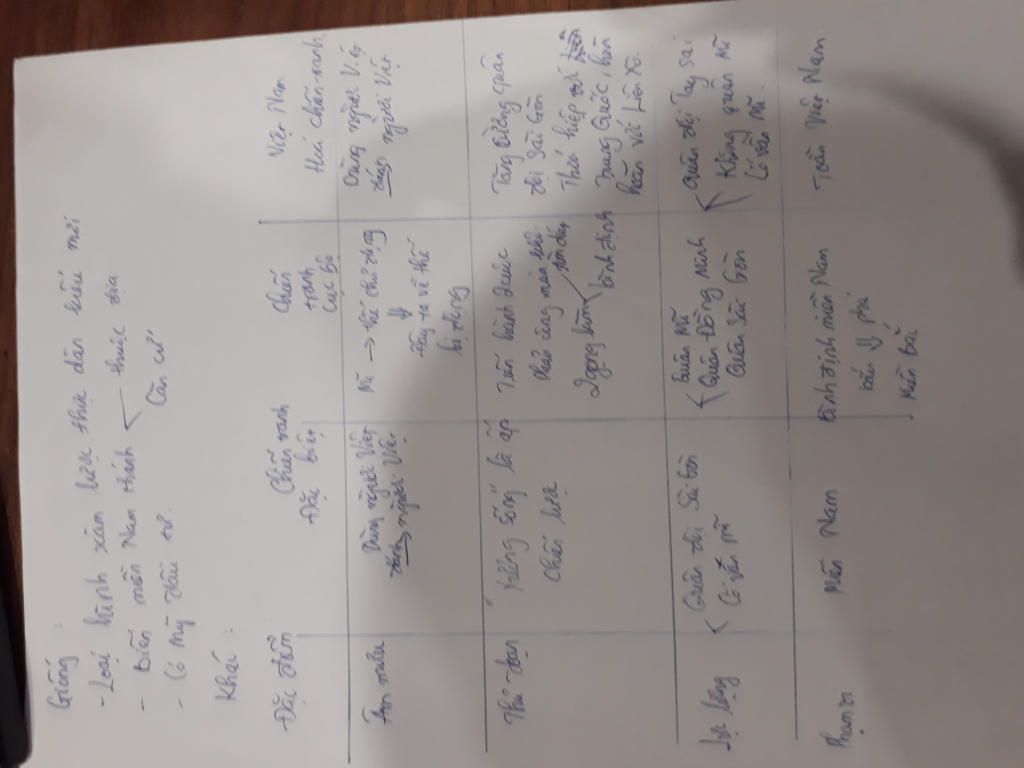 Giống :
- Loại hình xâm lược thực dân kiểu mới
- Biến miền Nam thành thuộc địa
Căn cứ
- Có Mỹ đầu tư.
Khác :
Đặc điểm
Chiến tranh
Đặc biệt
Chiến
tranh
Cục bộ
Việt Nam
Hoá chiến tranh
Âm mưu
Dùng người Việt
đánh người Việt
Mĩ → thế chủ động
⇓
đẩy ta về thế
bị động
Dùng người Việt
đánh người Việt
Thủ đoạn
Xương sống là ấp
Chiến lược
Tiến hành 2 cuộc
Phản công mùa khô
2 gọng kìm
bình định
Tăng cường quân
đội Sài Gòn
Thoả hiệp với
Trung Quốc, hòa
hoãn với Liên Xô.
Lực lượng
Quân đội Sài Gòn
Cố vấn Mĩ
Quân Mĩ
Quân Đồng Minh
Quân Sài Gòn
Quân đội Tay Sai
Không quân Mĩ
Cố vấn Mĩ.
Phạm vi
Miền Nam
Bình định miền Nam
bắn phá
Miền Bắc
Toàn Việt Nam